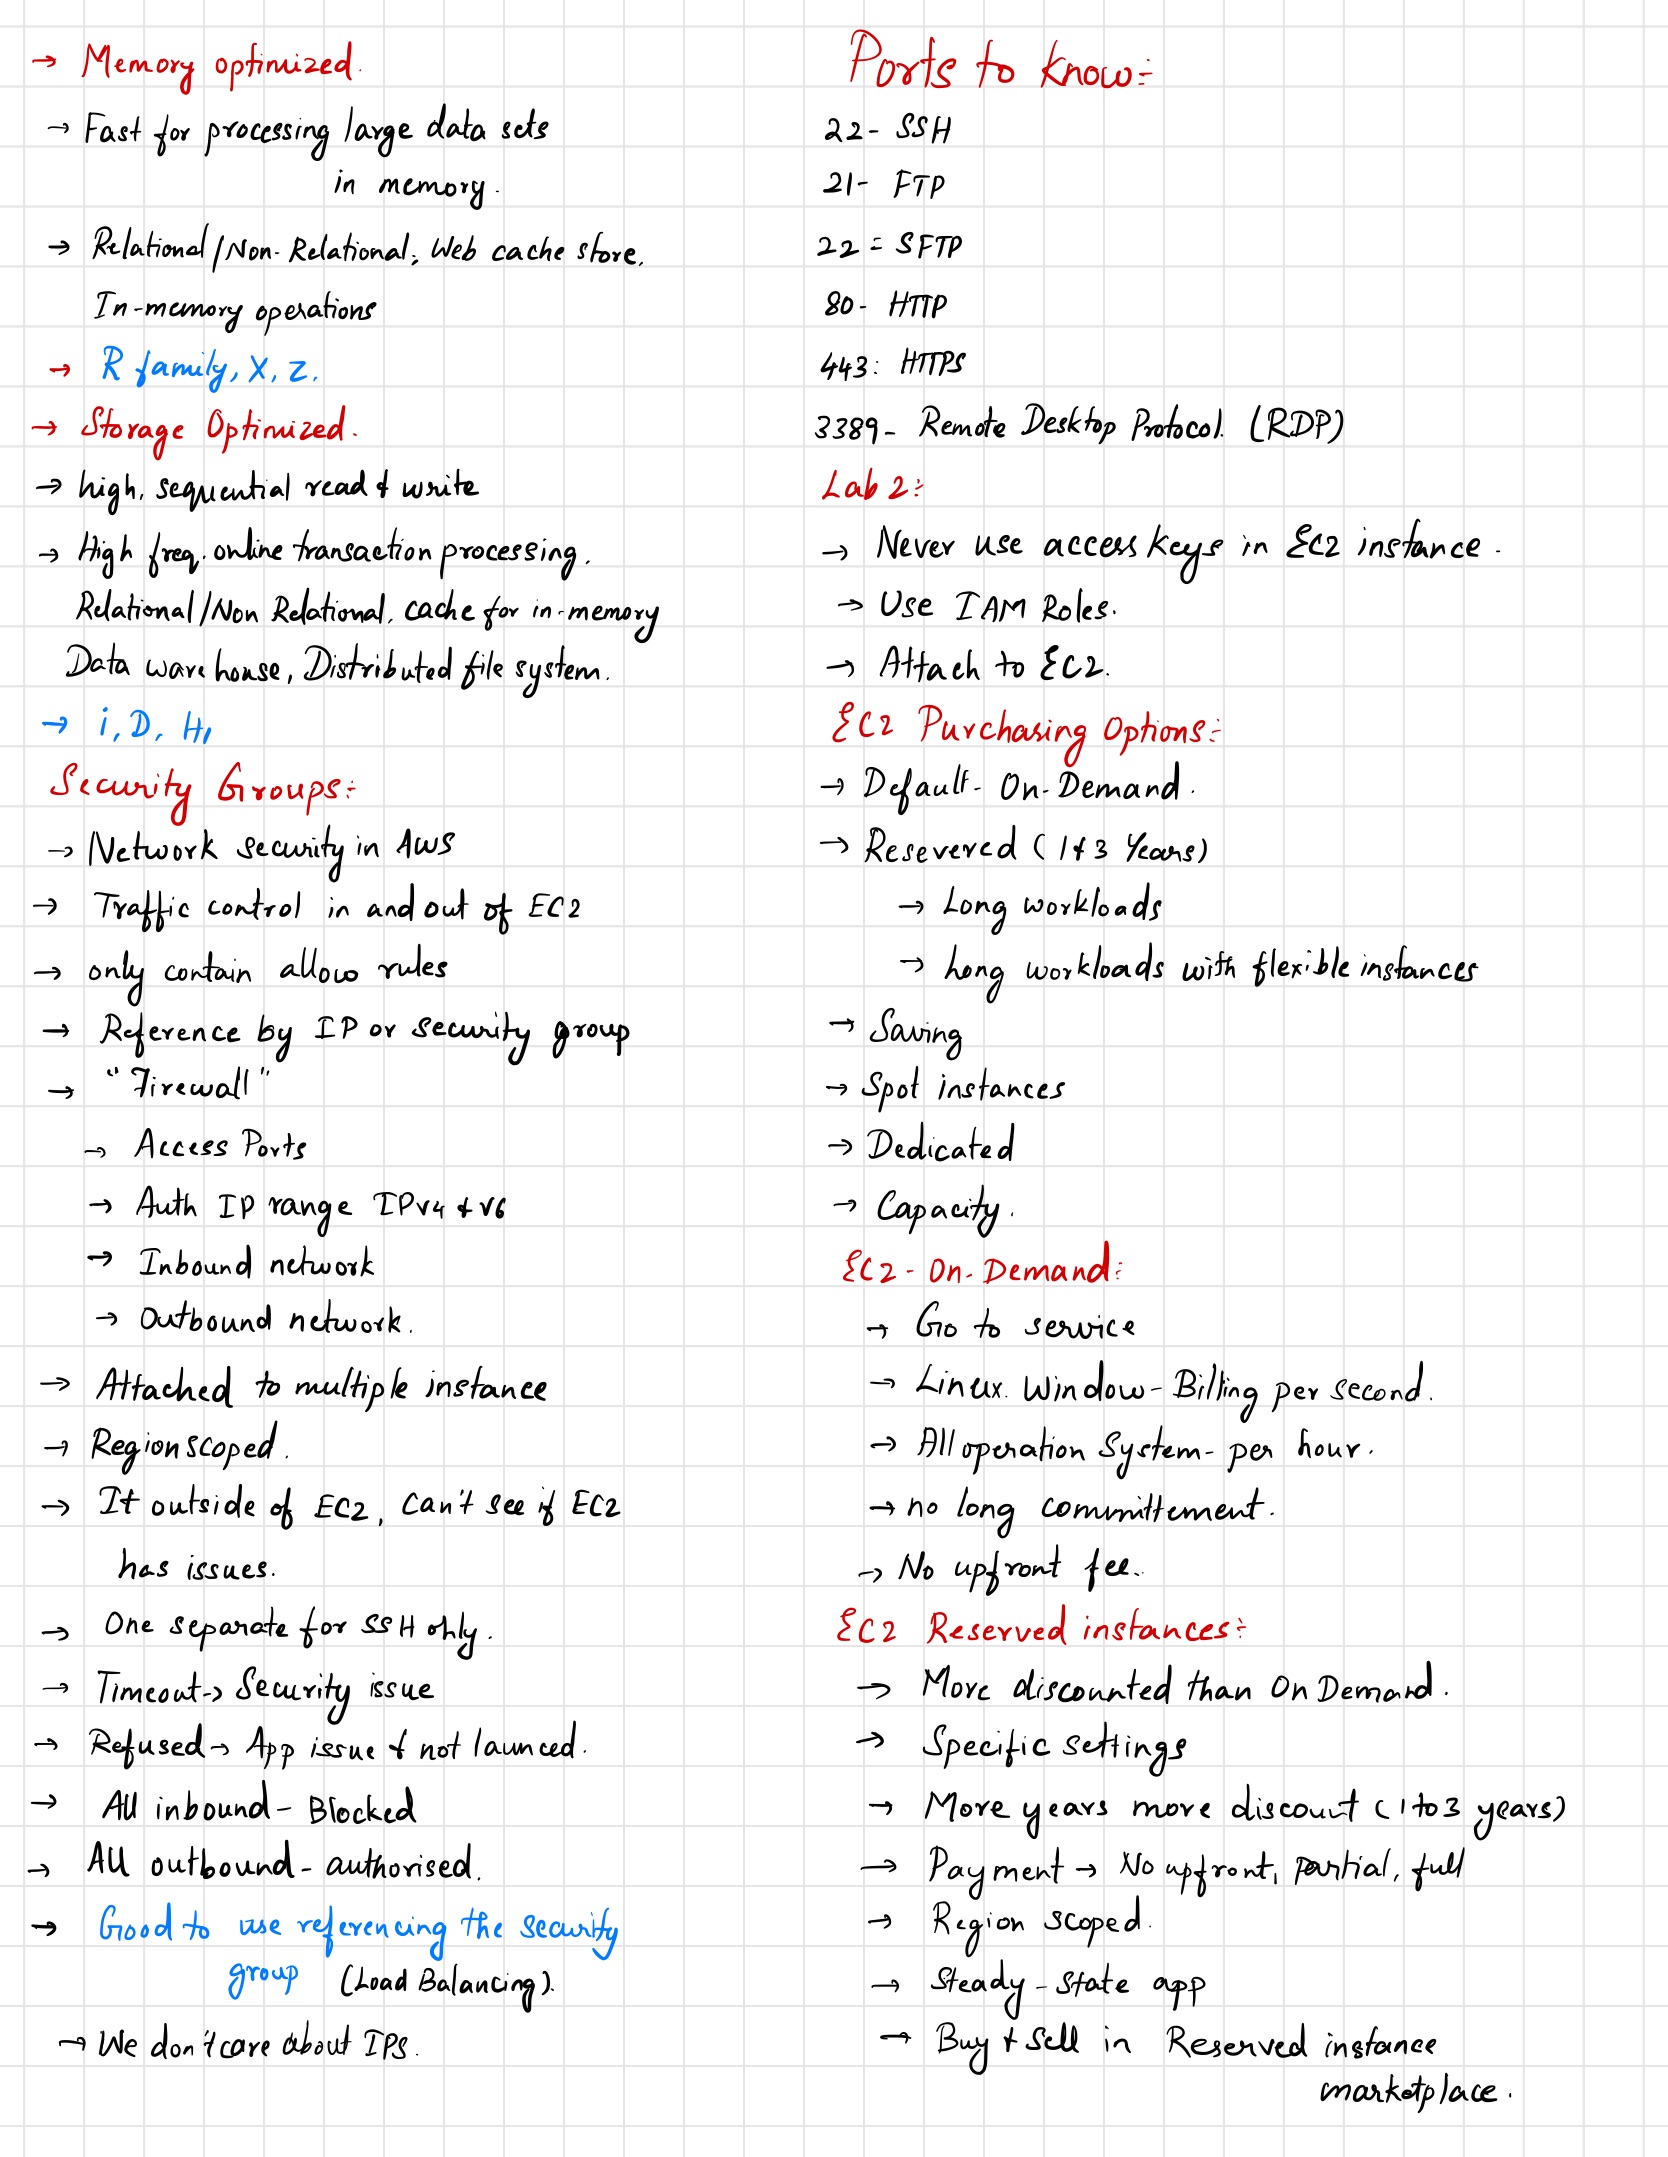 → Memory optimized.
→ Fast for processing large data sets
in memory.
→ Relational/Non-Relational, Web cache store,
In-memory operations
→ R family, X, Z.
→ Storage Optimized.
→ high, sequential read & write
→ High freq. online transaction processing.
Relational/Non Relational, cache for in-memory
Data warehouse, Distributed file system.
→ i, D, H1
Security Groups:-
→ Network security in AWS
→ Traffic control in and out of EC2
→ only contain allow rules
→ Reference by IP or security group
→ "Firewall"
→ Access Ports
→ Auth IP range IPv4 & v6
→ Inbound network
→ Outbound network.
→ Attached to multiple instance
→ Region scoped.
→ It outside of EC2, Can't see if EC2
has issues.
→ One separate for SSH only.
→ Timeout → Security issue
→ Refused → App issue & not launced.
→ All inbound - Blocked
→ All outbound - authorised.
→ Good to use referencing the security
group (Load Balancing).
→ We don't care about IPS.
Ports to know:-
22- SSH
21- FTP
22 = SFTP
80- HTTP
443: HTTPS
3389- Remote Desktop Protocol. (RDP)
Lab 2:-
→ Never use access keys in EC2 instance.
→ Use IAM Roles.
→ Attach to EC2.
EC2 Purchasing Options:-
→ Default- On-Demand.
→ Resevered (1 & 3 Years)
→ Long workloads
→ Long workloads with flexible instances
→ Saving
→ Spot instances
→ Dedicated
→ Capacity.
EC2 - On-Demand:-
→ Go to service
→ Linux. Window - Billing per second.
→ All operation System - per hour.
→ no long committement.
→ No upfront fee.
EC2 Reserved instances:-
→ More discounted than On Demand.
→ Specific settings
→ More years more discount (1 to 3 years)
→ Payment → No upfront, partial, full
→ Region scoped.
→ Steady-state app
→ Buy & Sell in Reserved instance
marketplace.